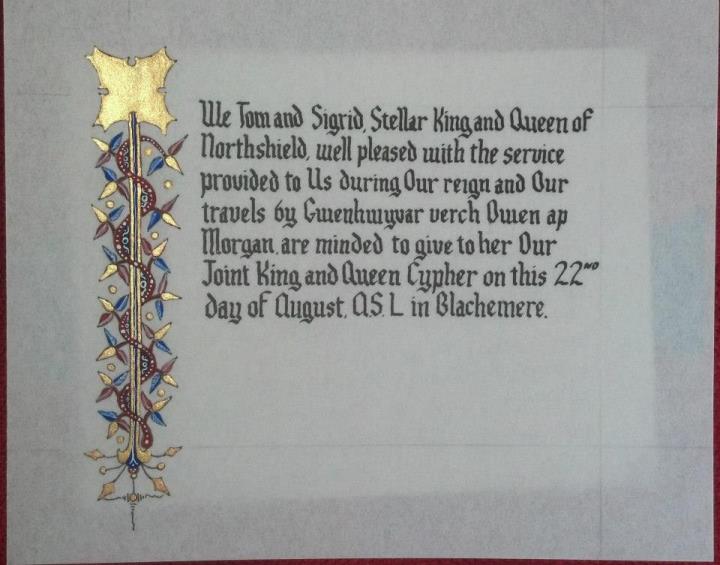 We Tom and Sigrid, Stellar King and Queen of
Northshield, well pleased with the service
provided to Us during Our reign and Our
travels by Gwenhwyvar verch Owen ap
Morgan, are minded to give to her Our
Joint King and Queen Cypher on this 22ND
day of August, A.S. L in Blachemere.